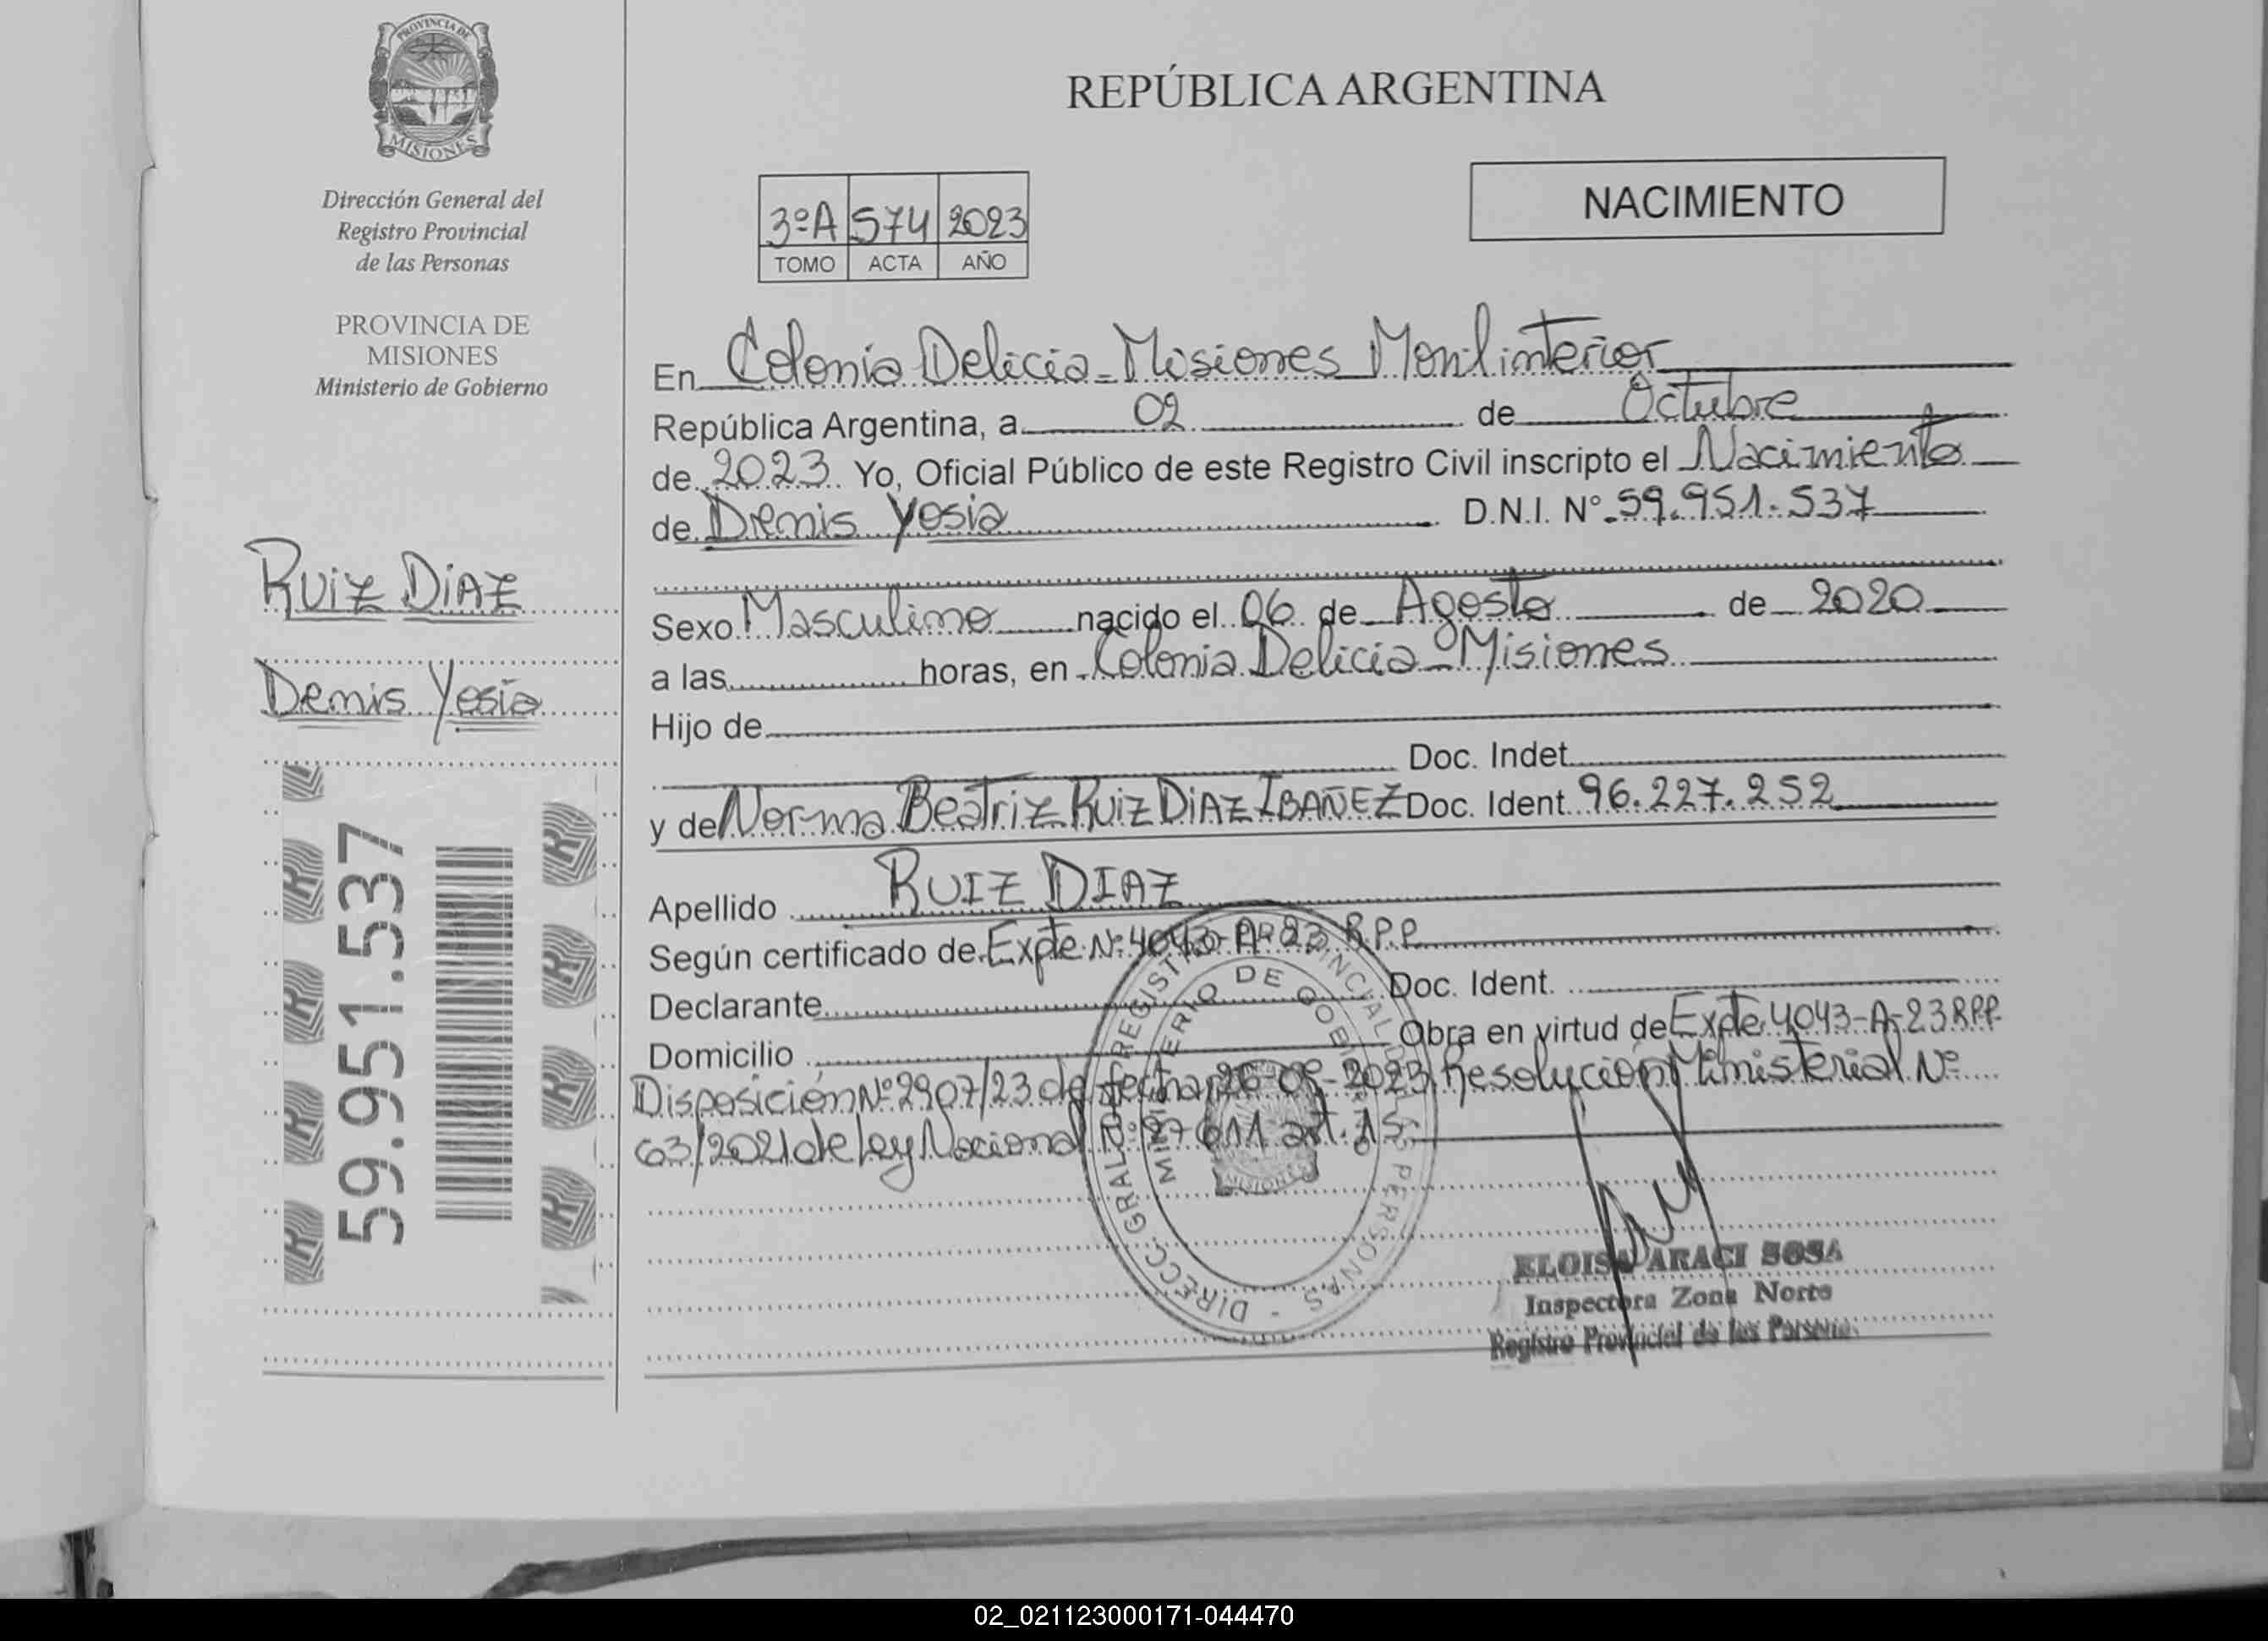 PROVINCIA DE
MISIONES
Dirección General del
Registro Provincial
de las Personas
PROVINCIA DE
MISIONES
Ministerio de Gobierno
RUIZ DIAZ
Demis Yosía
59.951.537
REPÚBLICA ARGENTINA
NACIMIENTO
3ºA 574 2023
TOMO ACTA AÑO
En Colonia Delicia - Misiones
República Argentina, a 02 de Octubre
de 2023 Yo, Oficial Público de este Registro Civil inscripto el Nacimiento
de Demis Yosia D.N.I. Nº 59.951.537
Sexo Masculino nacido el 06 de Agosto de 2020
a las horas, en Colonia Delicia - Misiones
Hijo de
Doc. Indet.
y de Norma Beatriz RUIZ DIAZ IBAÑEZ Doc. Ident. 96.227.252
Apellido RUIZ DIAZ
Según certificado de Expte Nº 4043-A-23 R.P.P
Declarante Doc. Ident.
Domicilio Obra en virtud de Expte 4043-A-23 RPP
Disposición Nº 2907/23 de fecha 26-09-2023. Resolución Ministerial Nº
63/2021 de Ley Nacional Nº 27611 art. 15
DIRECC. GRAL. REGISTRO PROVINCIAL DE LAS PERSONAS -
MINISTERIO DE GOBIERNO
MISIONES
ELOISA ARACI SOSA
Inspectora Zona Norte
Registro Provincial de las Personas
02_021123000171-044470